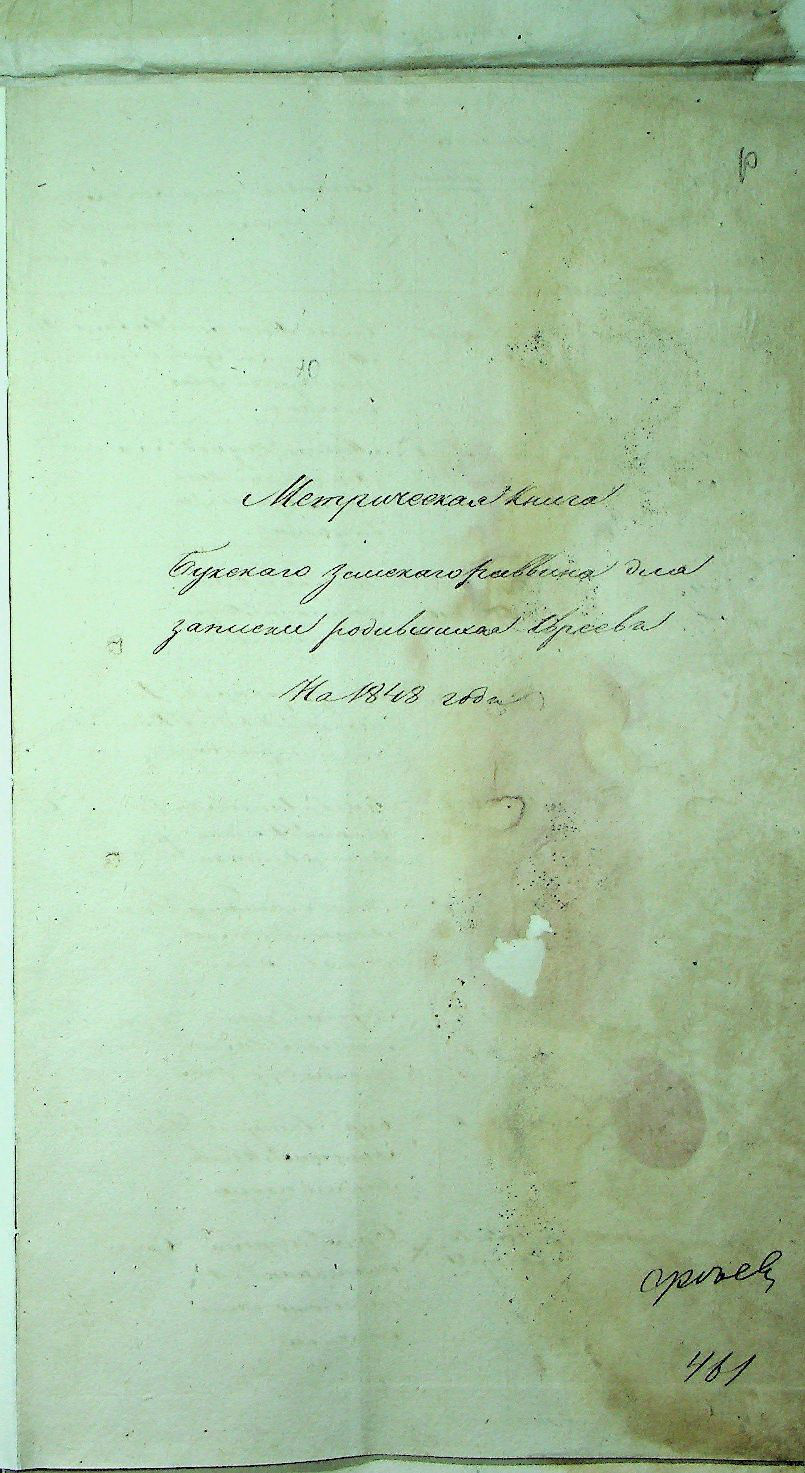 Метрическая книга
Букскаго земскаго раввина для
записки родившихся Евреевъ
На 1848 годъ
461